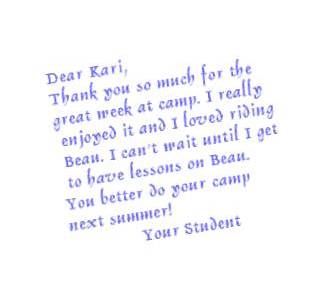 Dear Kari,
Thank you so much for the
great week at camp. I really
enjoyed it and I loved riding
Beau. I can't wait until I get
to have lessons on Beau.
You better do your camp
next summer!
Your Student